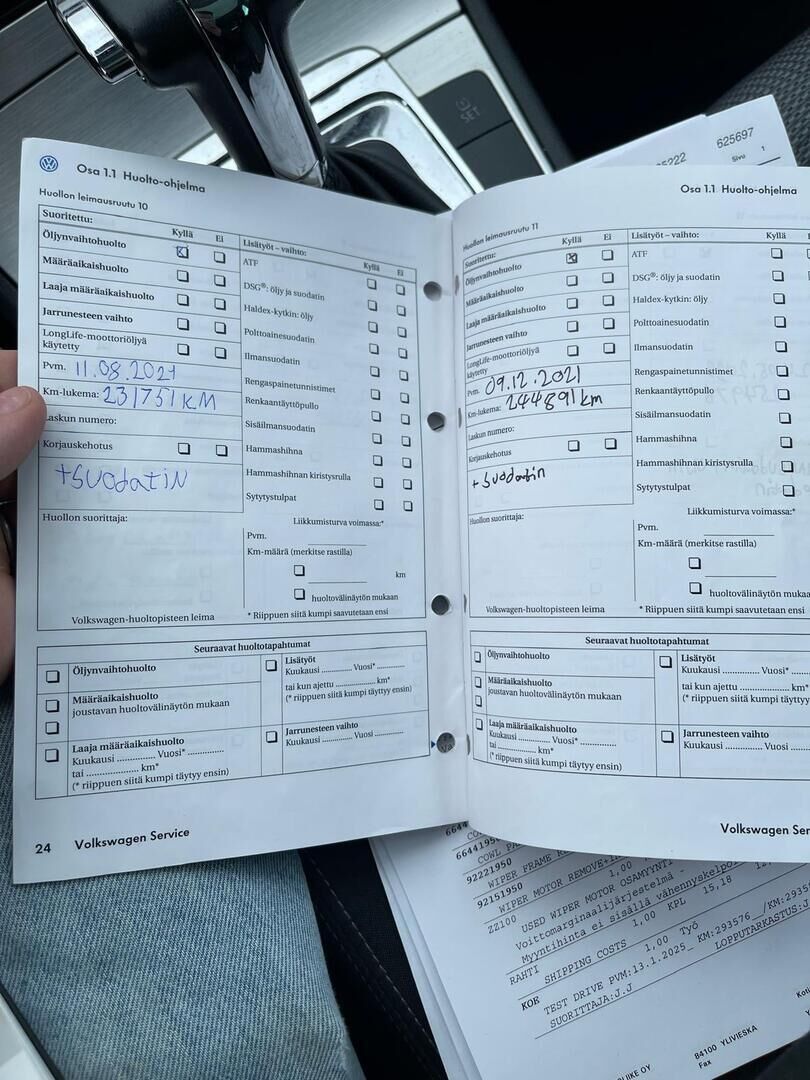 SET
625697
25222
Sivu 1
Osa 1.1 Huolto-ohjelma
Huollon leimausruutu 10
Suoritettu:
Kyllä Ei
Öljynvaihtohuolto
Määräaikaishuolto
Laaja määräaikaishuolto
Jarrunesteen vaihto
LongLife-moottoriöljyä
käytetty
Pvm. 11.08.2021
Km-lukema: 231751 KM
Laskun numero:
Korjauskehotus
+SUODATIN
Huollon suorittaja:
Volkswagen-huoltopisteen leima
Lisätyöt – vaihto:
Kyllä Ei
ATF
DSG®: öljy ja suodatin
Haldex-kytkin: öljy
Polttoainesuodatin
Ilmansuodatin
Rengaspainetunnistimet
Renkaantäyttöpullo
Sisäilmansuodatin
Hammashihna
Hammashihnan kiristysrulla
Sytytystulpat
Liikkumisturva voimassa:*
Pvm.
Km-määrä (merkitse rastilla)
km
huoltovälinäytön mukaan
* Riippuen siitä kumpi saavutetaan ensi
Seuraavat huoltotapahtumat
Öljynvaihtohuolto
Määräaikaishuolto
joustavan huoltovälinäytön mukaan
Laaja määräaikaishuolto
Kuukausi ............. Vuosi* .............
tai .................. km*
(* riippuen siitä kumpi täytyy ensin)
Lisätyöt
Kuukausi .......... Vuosi* ..........
tai kun ajettu .................. km*
(* riippuen siitä kumpi täytyy ensin)
Jarrunesteen vaihto
Kuukausi .......... Vuosi ..........
24 Volkswagen Service
Osa 1.1 Huolto-ohjelma
Huollon leimausruutu 11
Suoritettu:
Kyllä Ei
Öljynvaihtohuolto
Määräaikaishuolto
Laaja määräaikaishuolto
Jarrunesteen vaihto
LongLife-moottoriöljyä
käytetty
Pvm. 09.12.2021
Km-lukema: 244891 km
Laskun numero:
Korjauskehotus
+ Suodatin
Huollon suorittaja:
Volkswagen-huoltopisteen leima
Lisätyöt – vaihto:
Kyllä
ATF
DSG®: öljy ja suodatin
Haldex-kytkin: öljy
Polttoainesuodatin
Ilmansuodatin
Rengaspainetunnistimet
Renkaantäyttöpullo
Sisäilmansuodatin
Hammashihna
Hammashihnan kiristysrulla
Sytytystulpat
Liikkumisturva voimassa:*
Pvm.
Km-määrä (merkitse rastilla)
huoltovälinäytön mukaan
* Riippuen siitä kumpi saavutetaan ensi
Seuraavat huoltotapahtumat
Öljynvaihtohuolto
Määräaikaishuolto
joustavan huoltovälinäytön mukaan
Laaja määräaikaishuolto
Kuukausi ............. Vuosi* .............
tai .................. km*
(* riippuen siitä kumpi täytyy ensin)
Lisätyöt
Kuukausi .......... Vuosi*
tai kun ajettu .................. km*
(* riippuen siitä kumpi täytyy
Jarrunesteen vaihto
Kuukausi .......... Vuosi
Volkswagen Ser
66441950
COWL PA
92221950
WIPER FRAME
92151950 1,00
WIPER MOTOR REMOVE+
ZZ100
USED WIPER MOTOR OSAMYYNTI
Voittomarginaalijärjestelmä -
Myyntihinta ei sisällä vähennyskelpois
1,00 KPL 15,18
RAHTI
SHIPPING COSTS
1,00 Työ
KOE
TEST DRIVE PVM:13.1.2025_ KM:293576 _/KM:2935
SUORITTAJA:J.J LOPPUTARKASTUS:J.
LIIKE OY
84100 YLIVIESKA
Fax
Koti